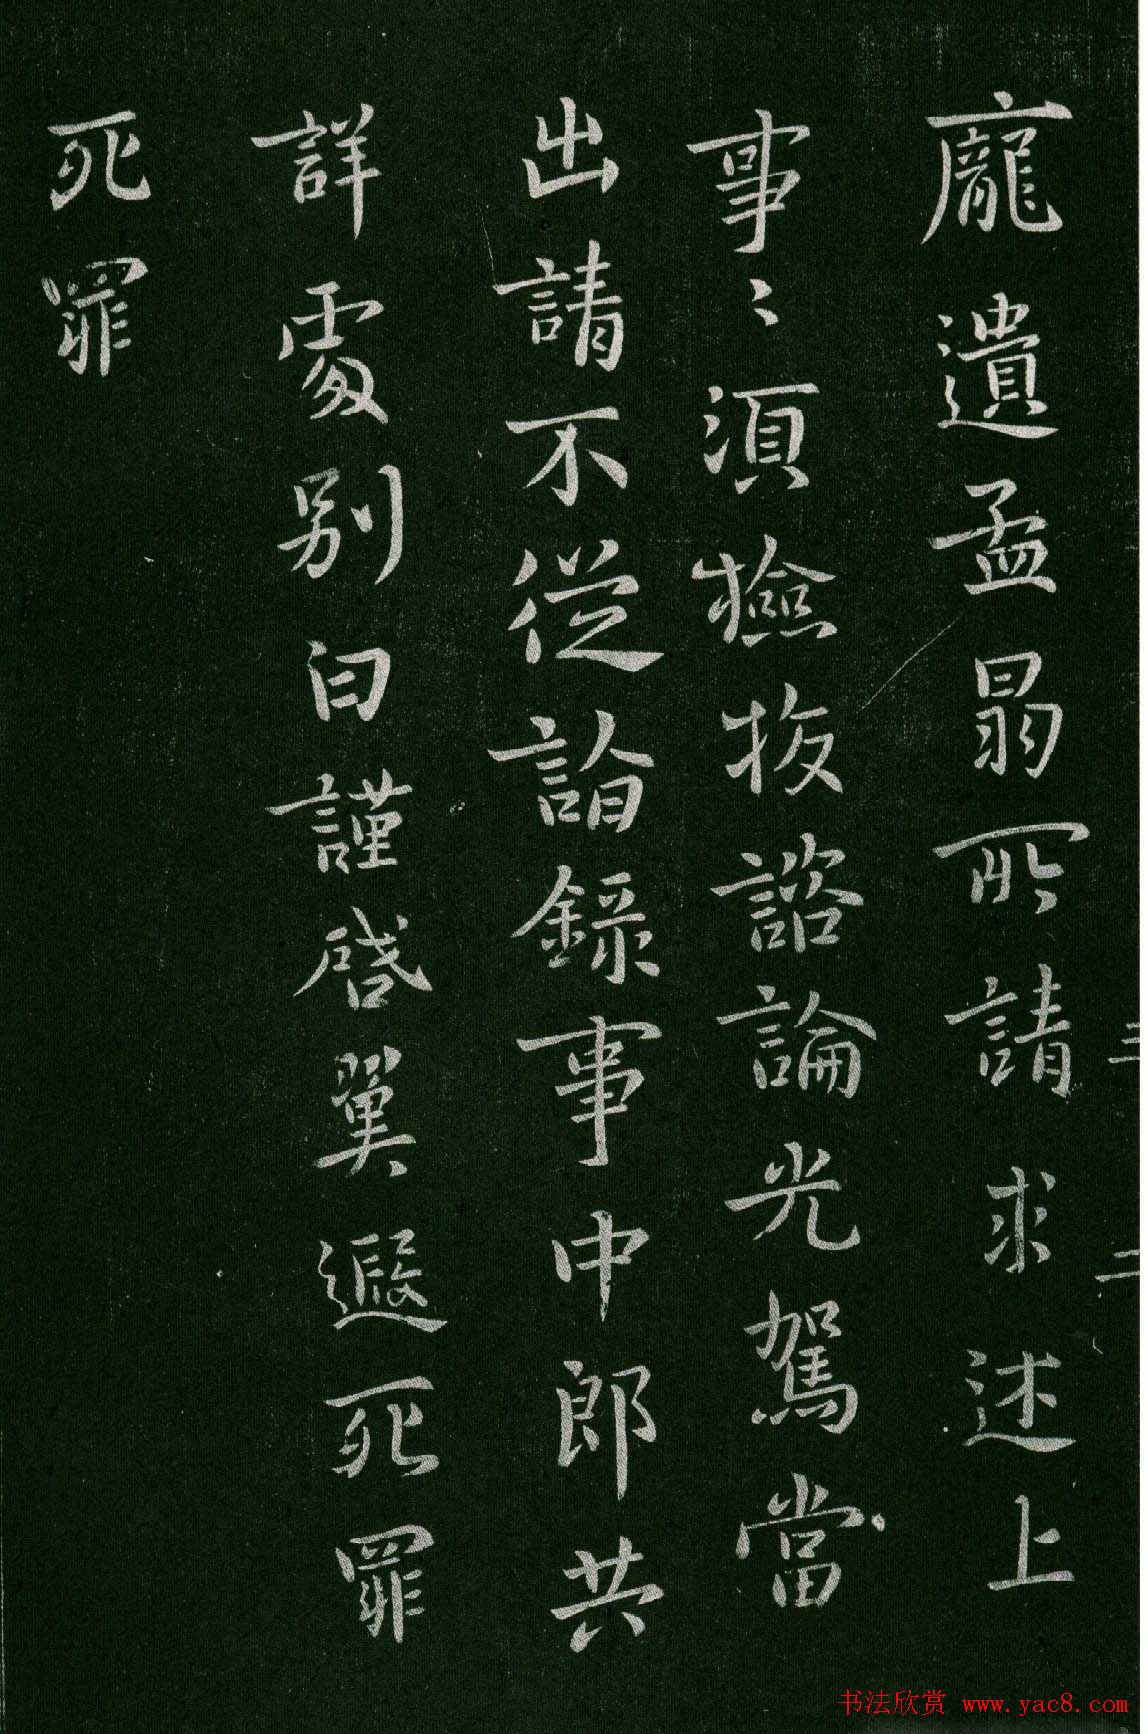 龐遺孟勗所請求述上
事〻須檢校諮論光駕當
出請不從詣錄事中郎共
詳處別白謹啓翼遐死罪
死罪
书法欣赏 www.yac8.com